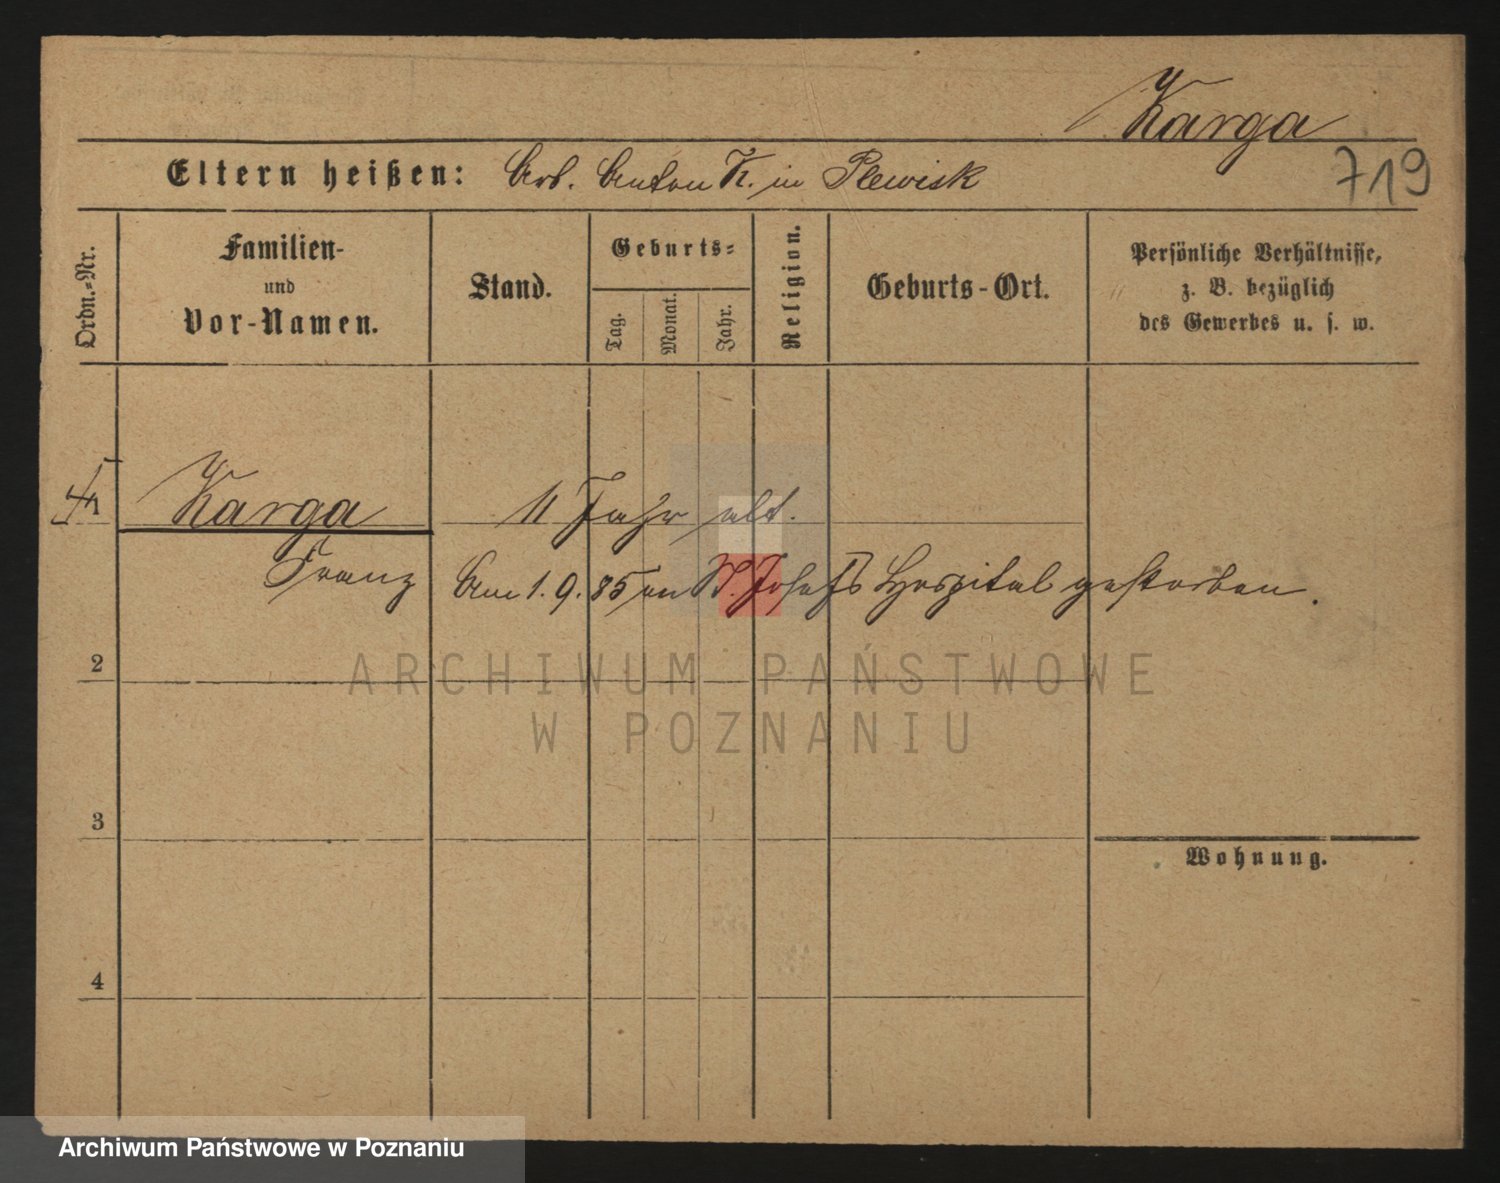 Karga
719
Eltern heißen: Arb. Anton K. in Plewisk
Ordn.-Nr.
Familien-
und
Vor-Namen.
Stand.
Geburts-
Tag.
Monat.
Jahr.
Religion.
Geburts-Ort.
Persönliche Verhältnisse,
z. B. bezüglich
des Gewerbes u. s. w.
1 Karga 11 Jahr alt.
Franz Am 1.9.85 im St. Josefs Hospital gestorben.
2
ARCHIWUM PAŃSTWOWE
W POZNANIU
3
Wohnung.
4
Archiwum Państwowe w Poznaniu